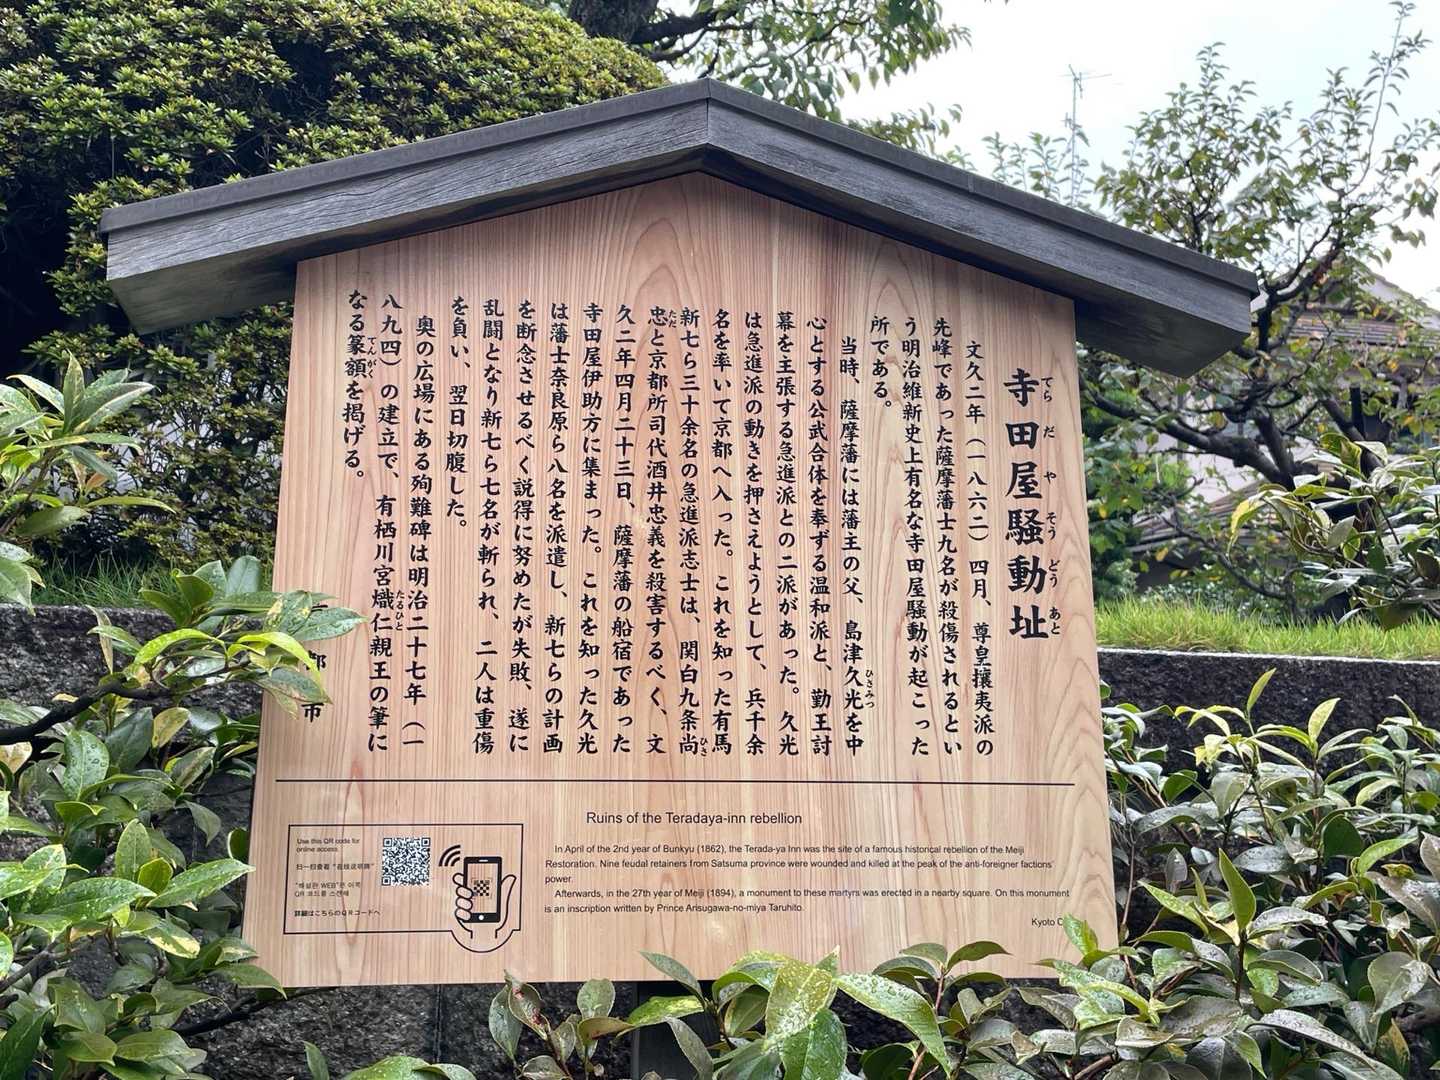 寺田屋騒動址
てらだやそうどうあと
文久二年（一八六二）四月、尊皇攘夷派の
先峰であった薩摩藩士九名が殺傷されるとい
う明治維新史上有名な寺田屋騒動が起こった
所である。
当時、薩摩藩には藩主の父、島津久光を中
ひさみつ
心とする公武合体を奉ずる温和派と、勤王討
幕を主張する急進派との二派があった。久光
は急進派の動きを押さえようとして、兵千余
名を率いて京都へ入った。これを知った有馬
新七ら三十余名の急進派志士は、関白九条尚
ひさ
忠と京都所司代酒井忠義を殺害するべく、文
ただ
久二年四月二十三日、薩摩藩の船宿であった
寺田屋伊助方に集まった。これを知った久光
は藩士奈良原ら八名を派遣し、新七らの計画
を断念させるべく説得に努めたが失敗、遂に
乱闘となり新七ら七名が斬られ、二人は重傷
を負い、翌日切腹した。
奥の広場にある殉難碑は明治二十七年（一
八九四）の建立で、有栖川宮熾仁親王の筆に
たるひと
なる篆額を掲げる。
てんがく
都市
Ruins of the Teradaya-inn rebellion
In April of the 2nd year of Bunkyu (1862), the Terada-ya Inn was the site of a famous historical rebellion of the Meiji
Restoration. Nine feudal retainers from Satsuma province were wounded and killed at the peak of the anti-foreigner factions'
power.
Afterwards, in the 27th year of Meiji (1894), a monument to these martyrs was erected in a nearby square. On this monument
is an inscription written by Prince Arisugawa-no-miya Taruhito.
Kyoto C
Use this QR code for
online access.
扫一扫查看“在线说明牌”
"해설판 WEB"은 이쪽
QR 코드를 스캔해
詳細はこちらのQRコードへ